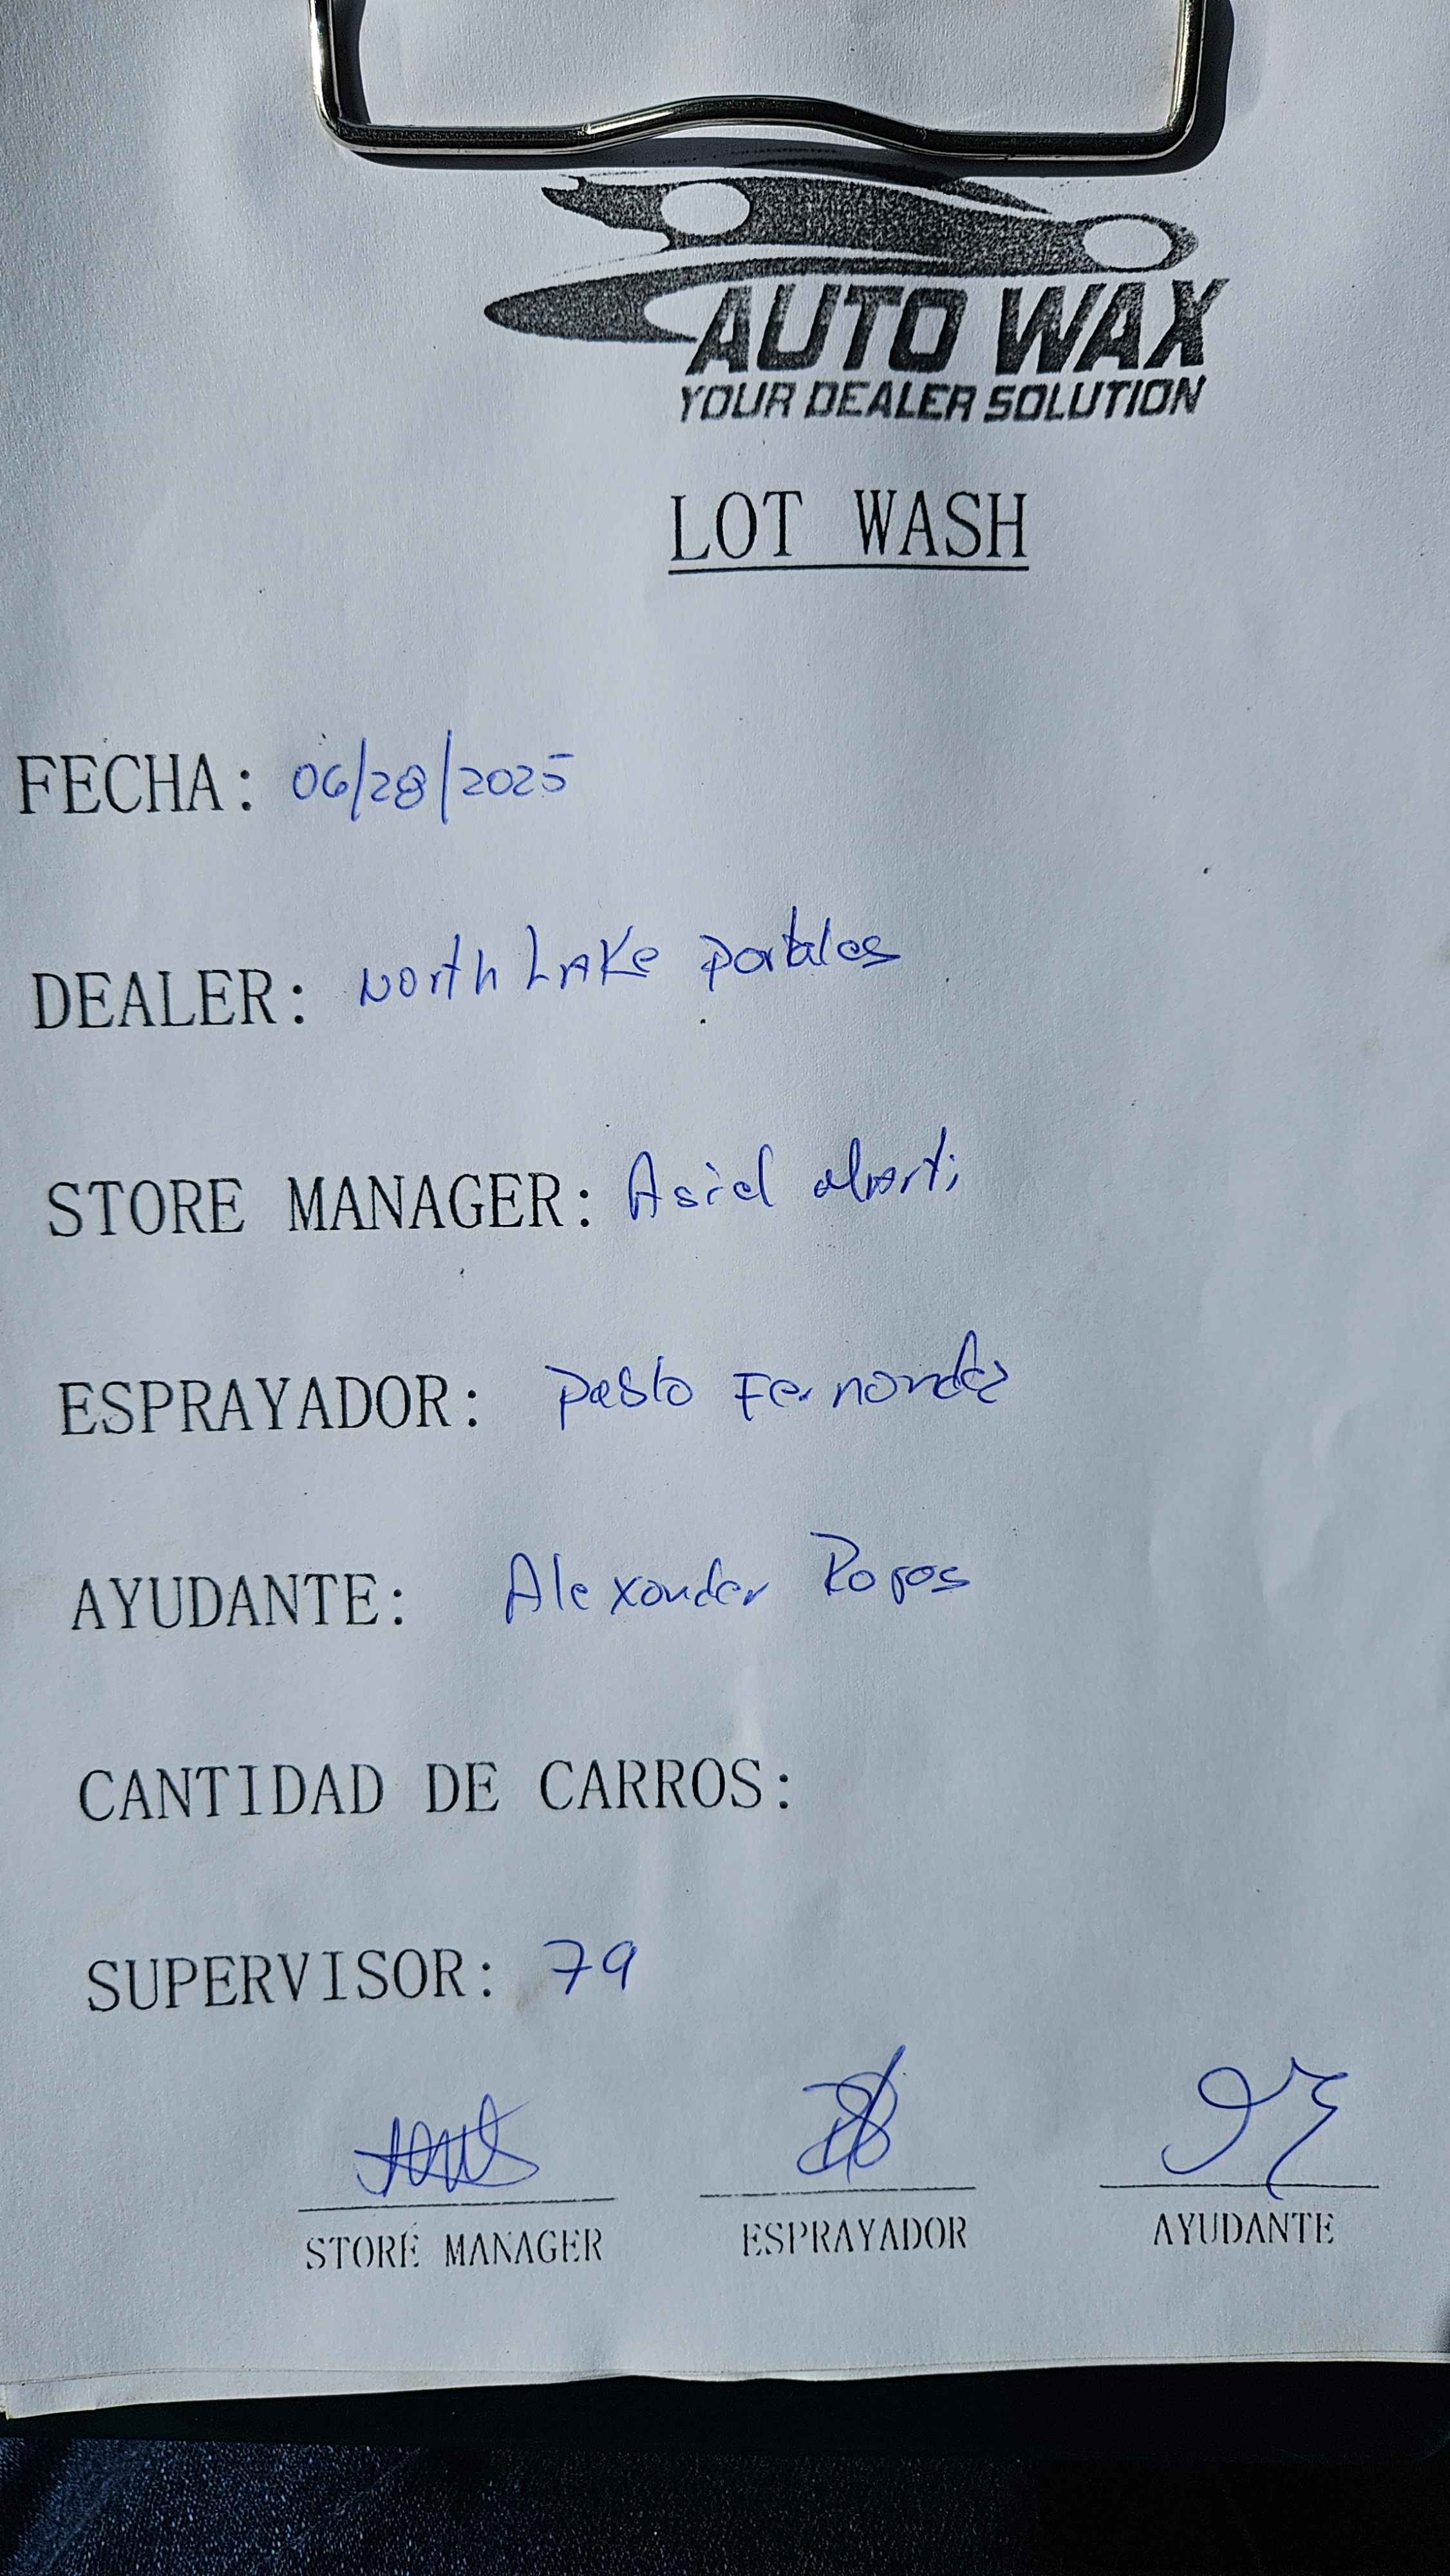 AUTO WAX
YOUR DEALER SOLUTION
LOT WASH
FECHA: 06/28/2025
DEALER: North LAKe portales
STORE MANAGER: Asiel
ESPRAYADOR: Pablo Fernandez
AYUDANTE: Alexander Rojas
CANTIDAD DE CARROS:
SUPERVISOR: 79
STORE MANAGER ESPRAYADOR AYUDANTE